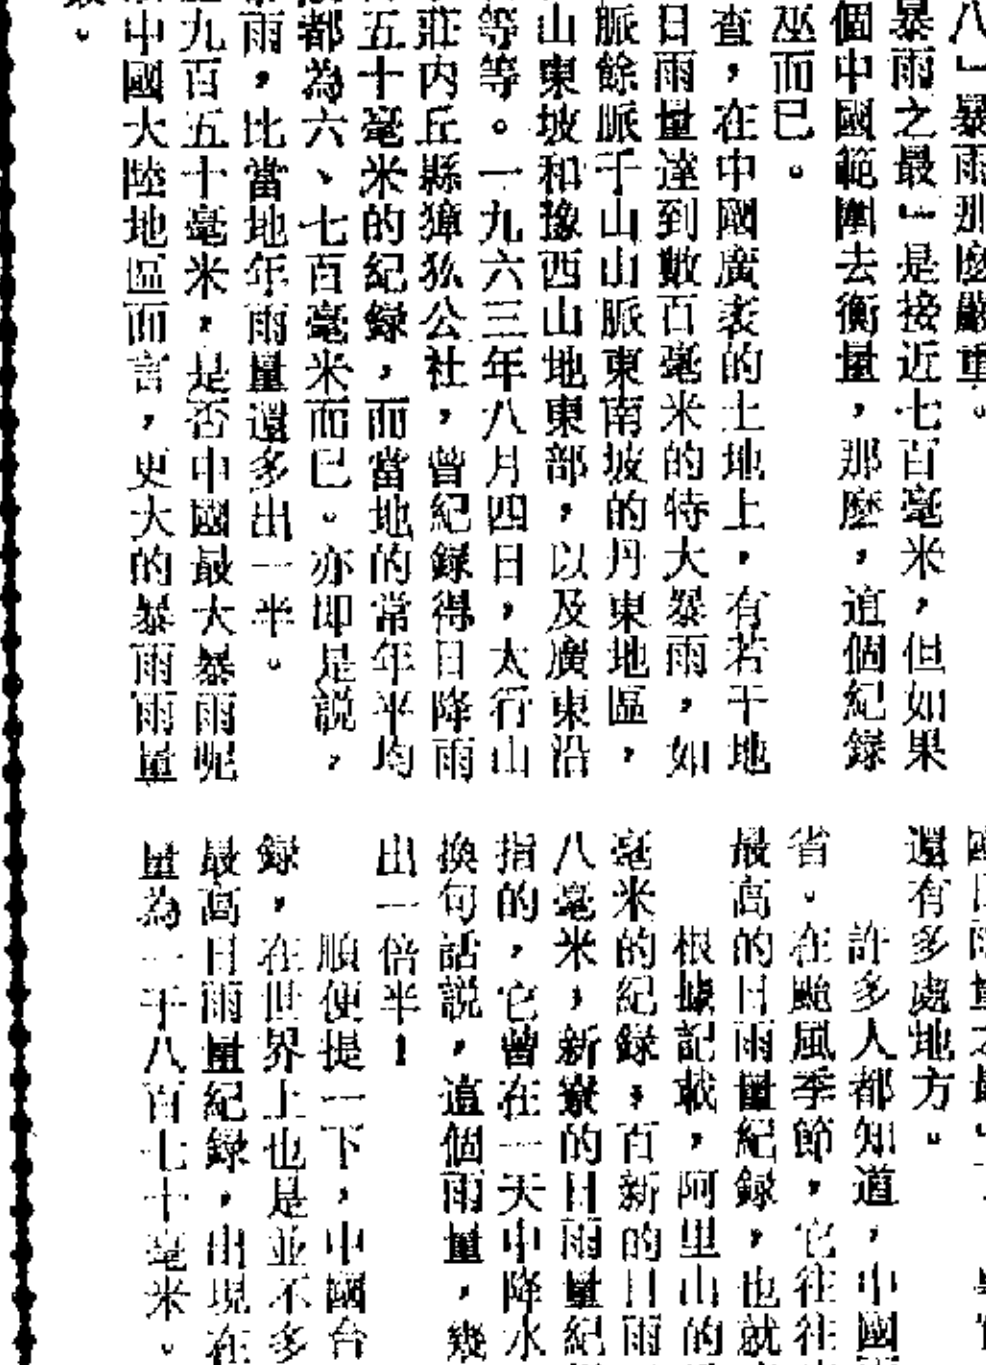 八」暴雨那麼嚴重。
暴雨之最」是接近七百毫米，但如果
個中國範圍去衡量，那麼，這個紀錄
巫而已。
查，在中國廣袤的土地上，有若干地
日雨量達到數百毫米的特大暴雨，如
脈餘脈千山山脈東南坡的丹東地區，
山東坡和豫西山地東部，以及廣東沿
等等。一九六三年八月四日，太行山
莊內丘縣獐㹤公社，曾紀錄得日降雨
五十毫米的紀錄，而當地的常年平均
都為六、七百毫米而已。亦即是説，
雨，比當地年雨量還多出一半。
九百五十毫米，是否中國最大暴雨呢
中國大陸地區而言，更大的暴雨雨量
。
還有多處地方。
許多人都知道，中國
省。在颱風季節，它往往
最高的日雨量紀錄，也就
根據記載，阿里山的
毫米的紀錄，百新的日雨
八毫米，新寮的日雨量紀
指的，它曾在一天中降水
換句話説，這個雨量，幾
出一倍半！
順便提一下，中國台
錄，在世界上也是並不多
最高日雨量紀錄，出現在
量為一千八百七十毫米。